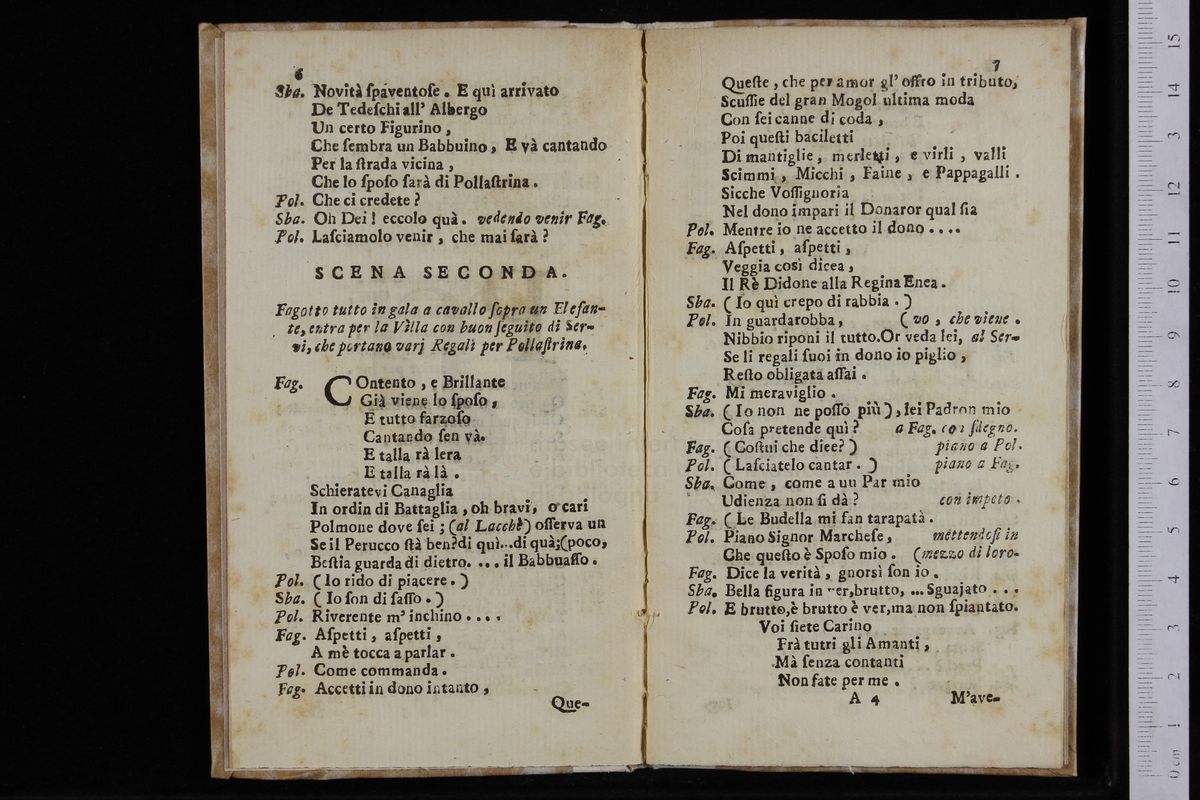 6
Sba. Novità ſpaventoſe. E quì arrivato
De Tedeſchi all' Albergo
Un certo Figurino,
Che ſembra un Babbuino, E và cantando
Per la ſtrada vicina,
Che lo ſpoſo ſarà di Pollaſtrina.
Pol. Che ci credete?
Sba. Oh Dei! eccolo quà. vedendo venir Fag.
Pol. Laſciamolo venir, che mai ſarà?
SCENA SECONDA.
Fagotto tutto in gala a cavallo ſopra un Elefan-
te, entra per la Villa con buon ſeguito di Ser-
vi, che portano varj Regali per Pollaſtrina.
Fag. COntento, e Brillante
Già viene lo ſpoſo,
E tutto farzoſo
Cantando ſen và.
E talla rà lera
E talla rà là.
Schieratevi Canaglia
In ordin di Battaglia, oh bravi, o cari
Polmone dove ſei; (al Lacchè) oſſerva un
Se il Perucco ſtà ben? di quì...di quà; (poco,
Beſtia guarda di dietro. ... il Babbuaſſo.
Pol. (Io rido di piacere.)
Sba. (Io ſon di ſaſſo.)
Pol. Riverente m' inchino....
Fag. Aſpetti, aſpetti,
A mè tocca a parlar.
Pol. Come commanda.
Fag. Accetti in dono intanto,
Que-
7
Queſte, che per amor gl' offro in tributo,
Scuffie del gran Mogol ultima moda
Con ſei canne di coda,
Poi queſti baciletti
Di mantiglie, merletti, e virli, valli
Scimmi, Micchi, Faine, e Pappagalli.
Sicche Voſſignoria
Nel dono impari il Donaror qual ſia
Pol. Mentre io ne accetto il dono....
Fag. Aſpetti, aſpetti,
Veggia così dicea,
Il Rè Didone alla Regina Enea.
Sba. (Io quì crepo di rabbia.)
Pol. In guardarobba, (vo, che viene.
Nibbio riponi il tutto. Or veda lei, al Ser-
Se li regali ſuoi in dono io piglio,
Reſto obligata aſſai.
Fag. Mi meraviglio.
Sba. (Io non ne poſſo più), lei Padron mio
Coſa pretende quì? a Fag. con ſdegno.
Fag. (Coſtui che dice?) piano a Pol.
Pol. (Laſciatelo cantar.) piano a Fag.
Sba. Come, come a uu Par mio
Udienza non ſi dà? con impeto.
Fag. (Le Budella mi fan tarapatà.
Pol. Piano Signor Marcheſe, mettendoſi in
Che queſto è Spoſo mio. (mezzo di loro-
Fag. Dice la verità, gnorsì ſon io.
Sba. Bella figura in ver, brutto, ... Sguajato...
Pol. E brutto, è brutto è ver, ma non ſpiantato.
Voi ſiete Carino
Frà tutri gli Amanti,
Mà ſenza contanti
Non fate per me.
A 4 M'ave-
0 cm 1 2 3 4 5 6 7 8 9 10 11 12 13 14 15